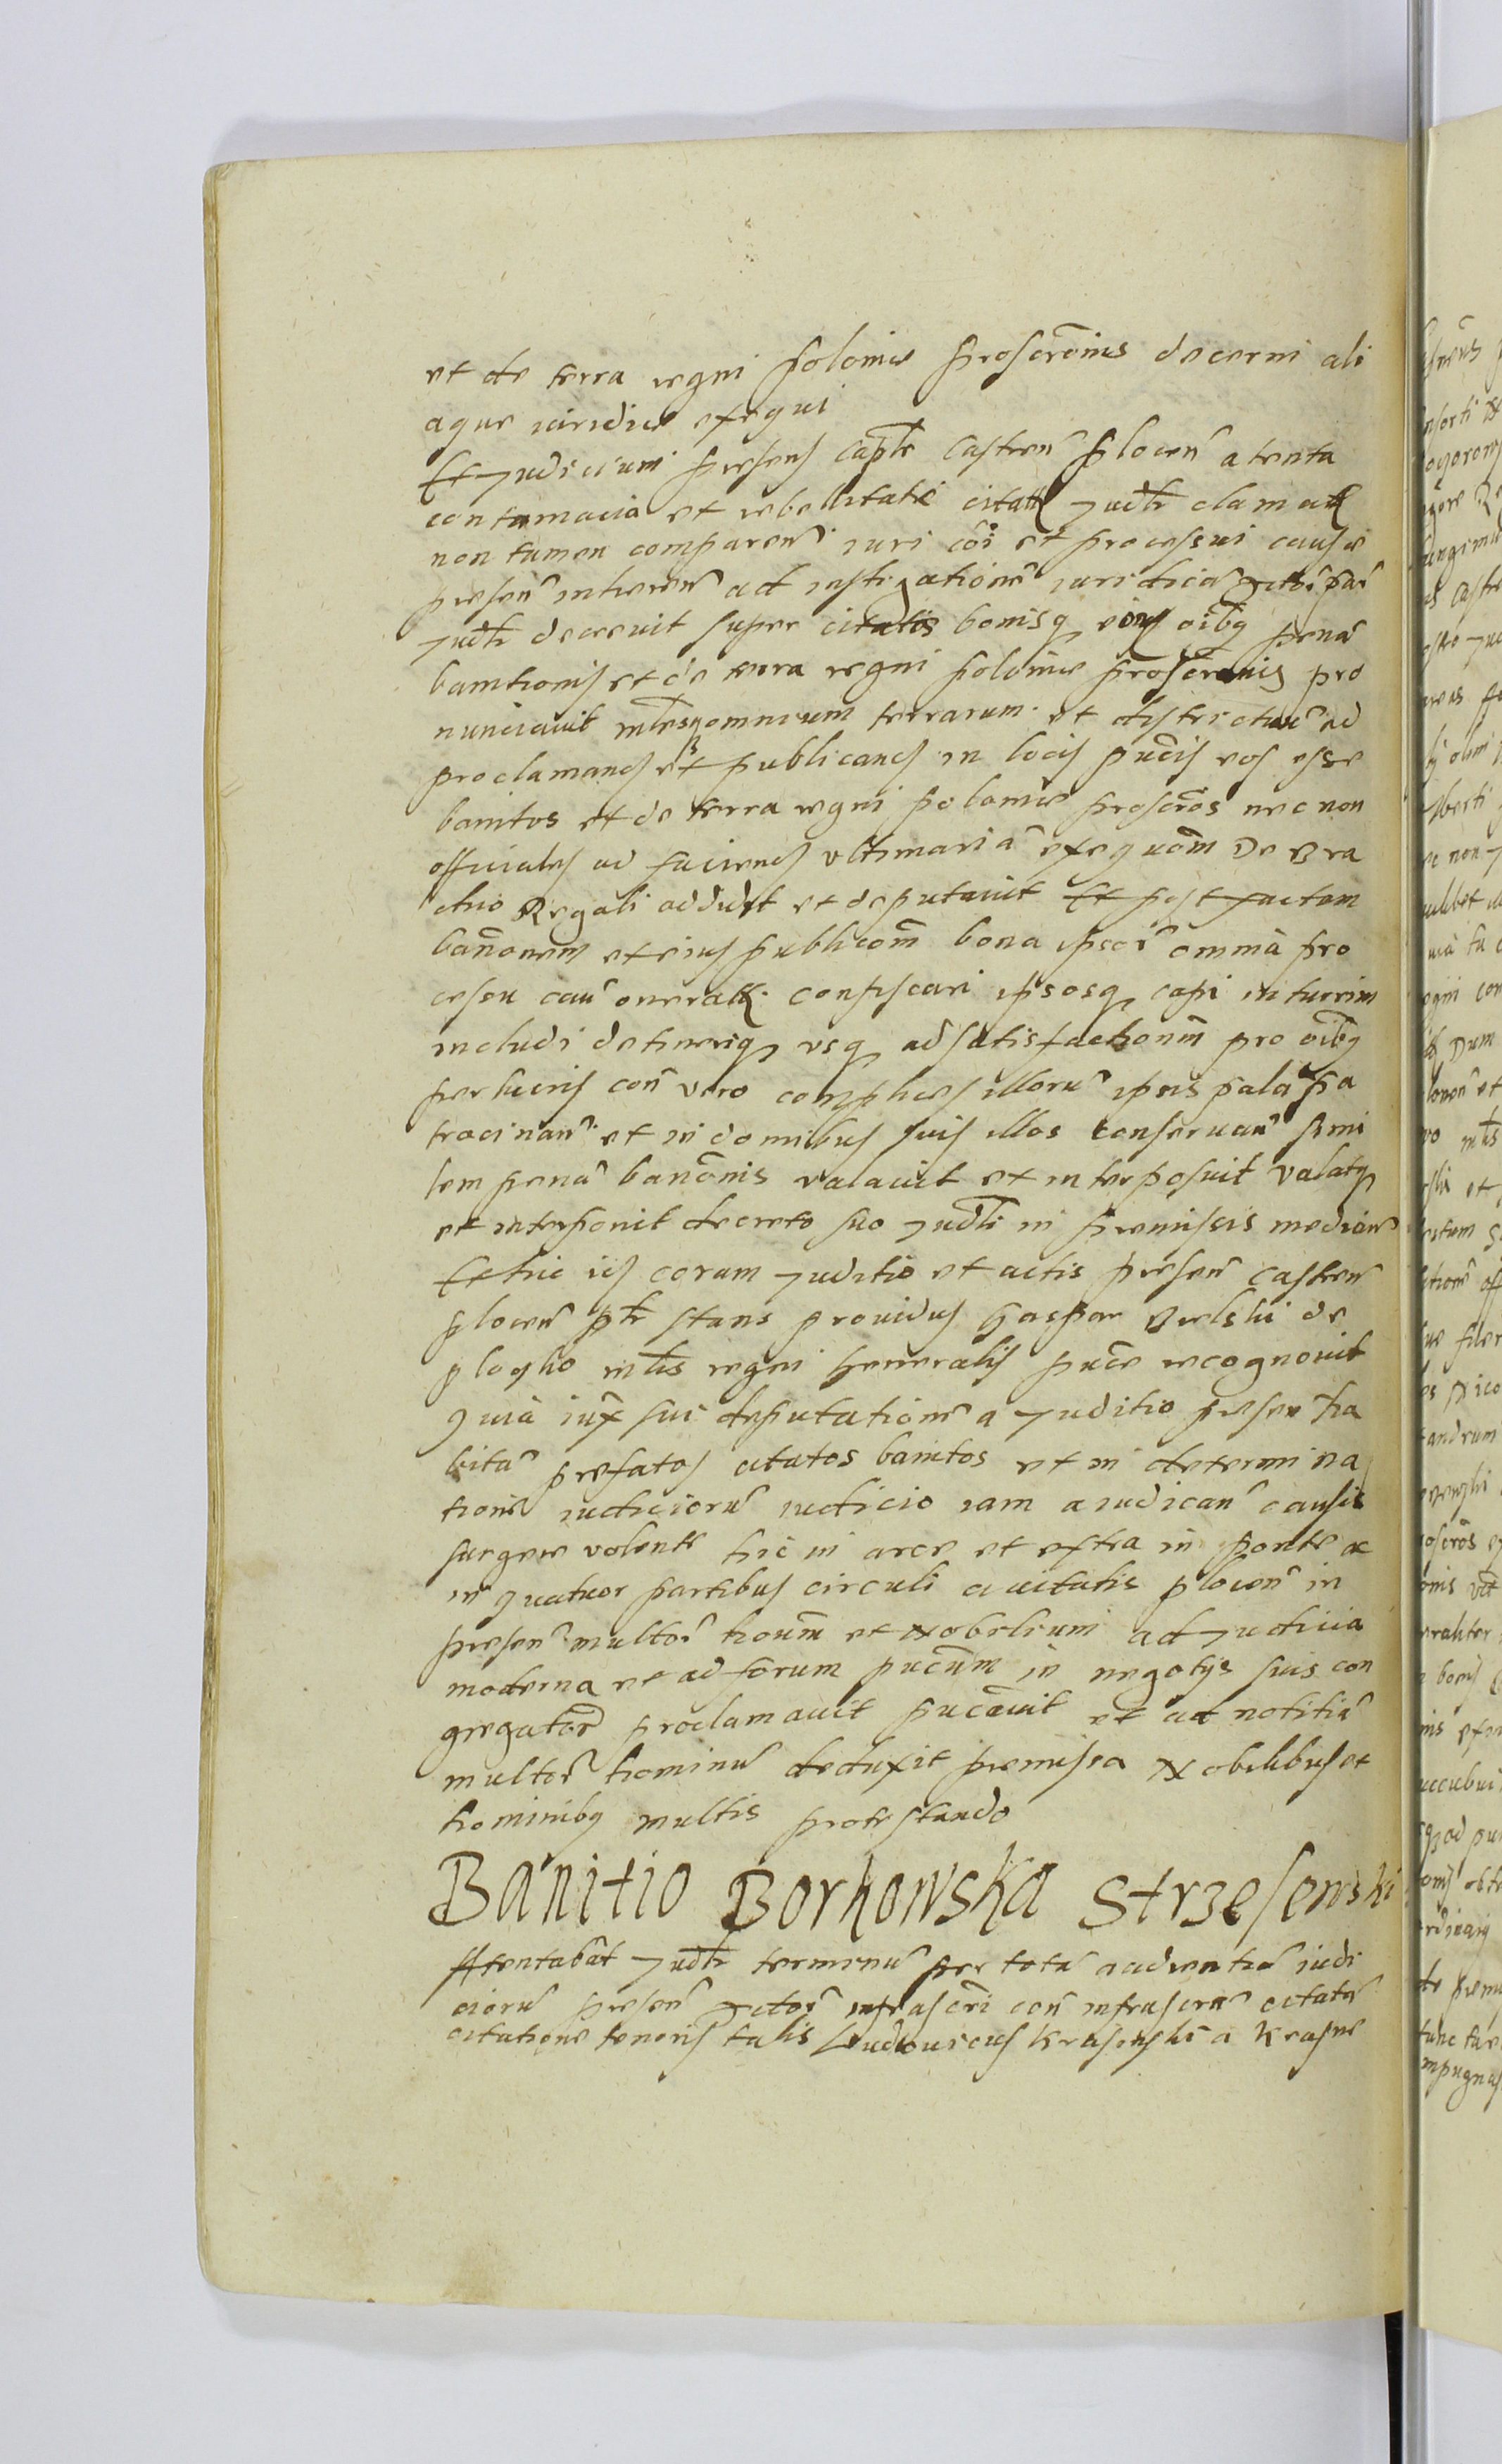 et de terra regni Polonie proscrōnis decerni ali
aque iuridice exequi
Et Judicium presens Caple Castren Plocen atenta
contumacia et rebellitate citatt Judtr clamatt
non tamen comparen iuri cōi et processui cause
presen inheren ad instigationē iuridicā Actor par
Judtr decrevit super citatis bonisq eorum oibq pena
banitionis et de terra regni Polonie proscrōnis pro
nunciavit mlesq omnium terrarum et districtuū ad
proclamand et publicand in locis pucis eos esse
banitos et de terra regni Polonie proscrōs nec non
officiales ad faciend vltimariā exequōm De Bra
chio Regali addidit et deputavit Et post factam
banōnem et eius publicōm bona ipsor omnia pro
cessu cau oneratt confiscari ipsosq capi in turrim
includi detineriq usq ad satisfactionm pro oibq
perlucris con vero complices illorū ipsis palā pa
trocinan et in domibus suis illos conseruan simi
lem penā banōnis valavit et interposuit valatq
et interponit decreto suo Judli in premissis median
Et hic iis coram Juditio et actis presen Castren
Plocen ptr stans providus Gaspar Bielski de
Ploczko mlis regni Generalis puce recognovit
Quia iux sui deputationē a Juditio presen ha
bitā prefatos citatos banitos et in determina
tione iudiciorū iudicio iam a iudican causis
surgere volente hic in arce et extra in ponte ac
in quatuor partibus circuli civitatis Plocen in
presen multor houm et Nobilium ad Judicia
moderna et ad forum pucum in negotys suis con
gregator proclamavit pucavit et ad notitiā
multor hominū deduxit premissa Nobilibus et
hominibq multis protestando
Banitio Borkowska Strzesewski
Attentabat Judtr terminū per totā audientiā iudi
ciorū presen Actor infrascri con infrascrm citatū
citatione tenoris talis Ludouicus Krasinski a Krasne